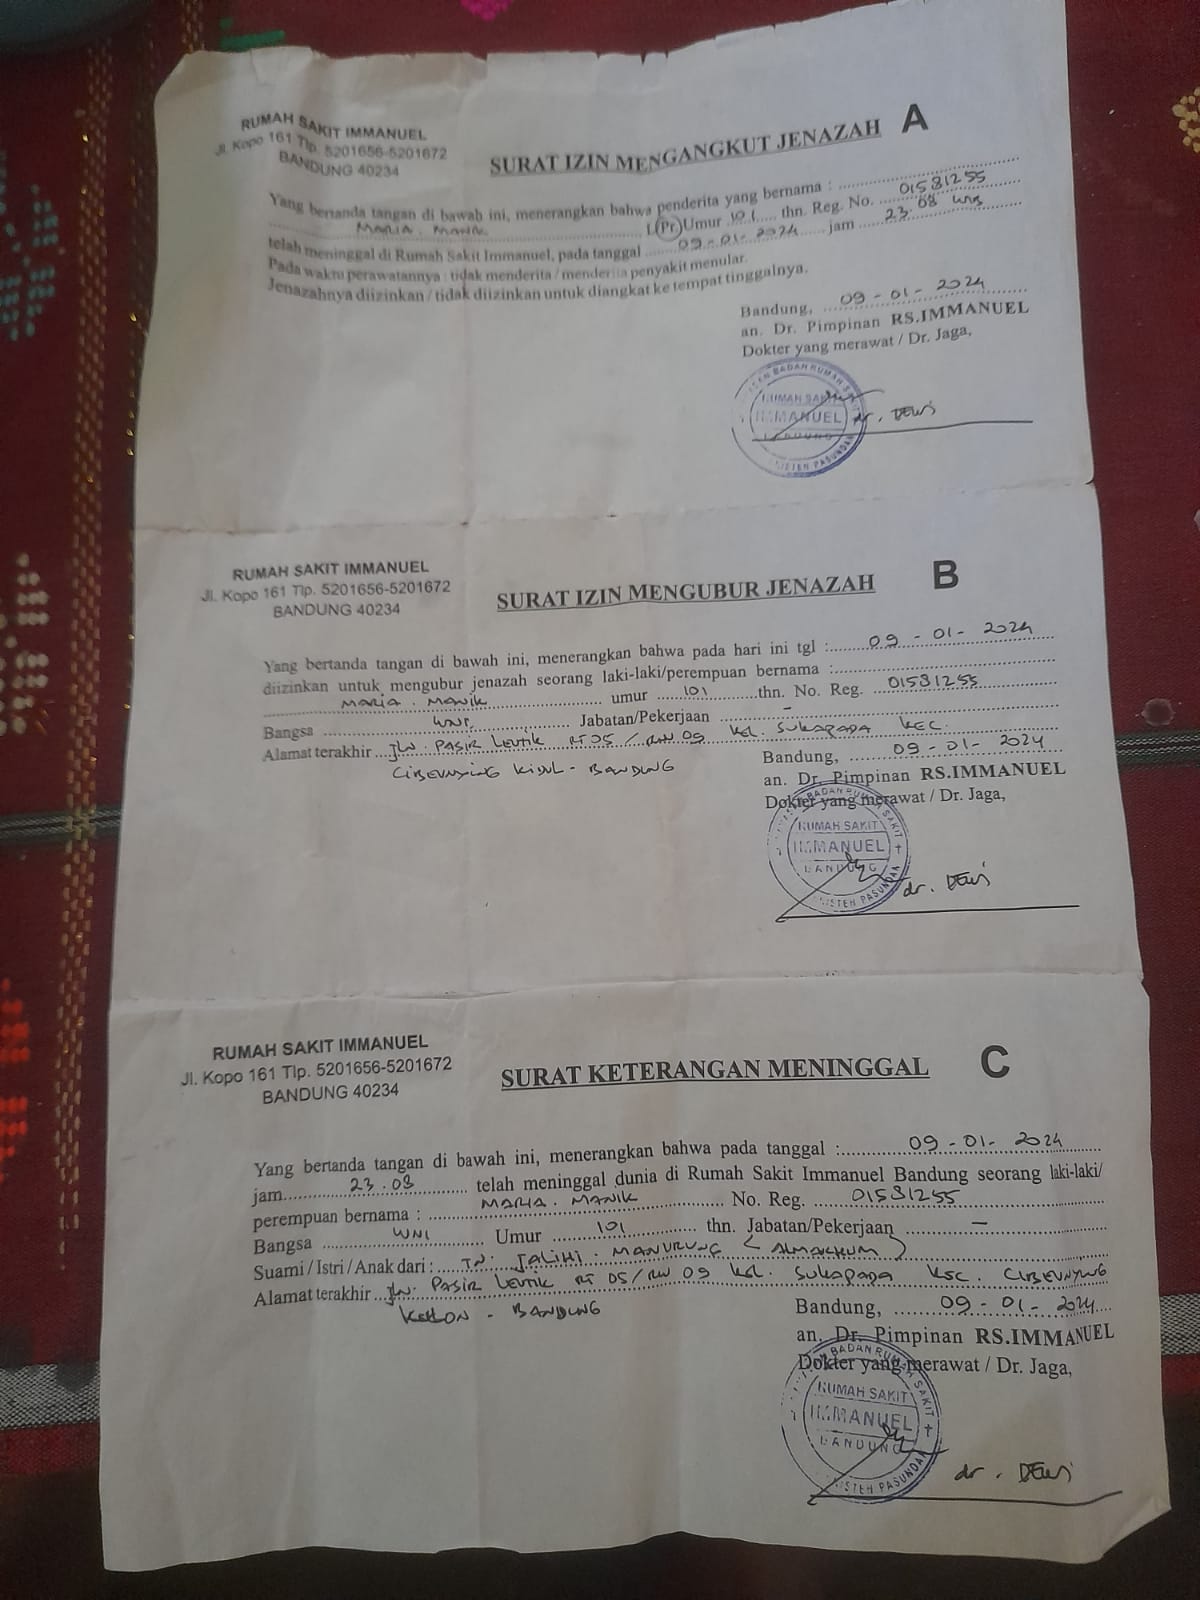 RUMAH SAKIT IMMANUEL
Jl. Kopo 161 Tlp. 5201656-5201672
BANDUNG 40234
SURAT IZIN MENGANGKUT JENAZAH A
Yang bertanda tangan di bawah ini, menerangkan bahwa penderita yang bernama :
MARIA. MANIK L (Pr) Umur 101 thn. Reg. No. 01581255
telah meninggal di Rumah Sakit Immanuel, pada tanggal 09-01-2024 jam 23 08 WIB
Pada waktu perawatannya : tidak menderita / menderita penyakit menular.
Jenazahnya diizinkan / tidak diizinkan untuk diangkat ke tempat tinggalnya.
Bandung, 09 - 01 - 2024
an. Dr. Pimpinan RS.IMMANUEL
Dokter yang merawat / Dr. Jaga,
BADAN RUMAH SAKIT
RUMAH SAKIT
IMMANUEL
BANDUNG
PASUNDAN
dr. DEWI
RUMAH SAKIT IMMANUEL
Jl. Kopo 161 Tlp. 5201656-5201672
BANDUNG 40234
SURAT IZIN MENGUBUR JENAZAH B
Yang bertanda tangan di bawah ini, menerangkan bahwa pada hari ini tgl : 09 - 01 - 2024
diizinkan untuk mengubur jenazah seorang laki-laki/perempuan bernama :
MARIA. MANIK umur 101 thn. No. Reg. 01581255
Bangsa WNI Jabatan/Pekerjaan -
Alamat terakhir JLN. PASIR LEUTIK RT 05 / RW 09 KEL. SUKAPADA KEC.
CIBEUNYING KIDUL - BANDUNG
Bandung, 09 - 01 - 2024
an. Dr. Pimpinan RS.IMMANUEL
Dokter yang merawat / Dr. Jaga,
BADAN RUMAH SAKIT
RUMAH SAKIT
IMMANUEL
BANDUNG
PASUNDAN
dr. DEWI
RUMAH SAKIT IMMANUEL
Jl. Kopo 161 Tlp. 5201656-5201672
BANDUNG 40234
SURAT KETERANGAN MENINGGAL C
Yang bertanda tangan di bawah ini, menerangkan bahwa pada tanggal : 09 - 01 - 2024
jam 23.08 telah meninggal dunia di Rumah Sakit Immanuel Bandung seorang laki-laki/
perempuan bernama : MARIA. MANIK No. Reg. 01581255
Bangsa WNI Umur 101 thn. Jabatan/Pekerjaan -
Suami / Istri / Anak dari : TN. JALIHI. MANURUNG (ALMARHUM)
Alamat terakhir JLN. PASIR LEUTIK RT 05/RW 09 KEL. SUKAPADA KEC. CIBEUNYING
- BANDUNG
Bandung, 09 - 01 - 2024
an. Dr. Pimpinan RS.IMMANUEL
Dokter yang merawat / Dr. Jaga,
BADAN RUMAH SAKIT
RUMAH SAKIT
IMMANUEL
BANDUNG
PASUNDAN
dr. DEWI